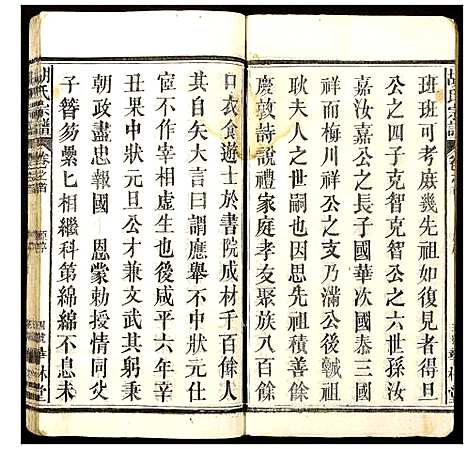 班班可考庶幾先祖如復見者得旦
公之四子克智克智公之六世孫汝
嘉汝嘉公之長子國華次國泰三國
祥而梅川祥公之支乃滿公後衈祖
耿夫人之世嗣也因夫世積善餘
慶敦詩說禮家庭孝友聚族八百餘
口衣食遊士於書院成材千百餘人
其自矢大言曰謂應舉不中狀元仕
宦不作宰相虛生也後咸平六年辛
丑果中狀元旦公才兼文武其躬秉
朝政盡忠報國 恩蒙勅授情同炎
子簪笏纍匕相繼科第綿綿不息未
胡氏宗譜
華林堂
胡氏宗譜
華林堂